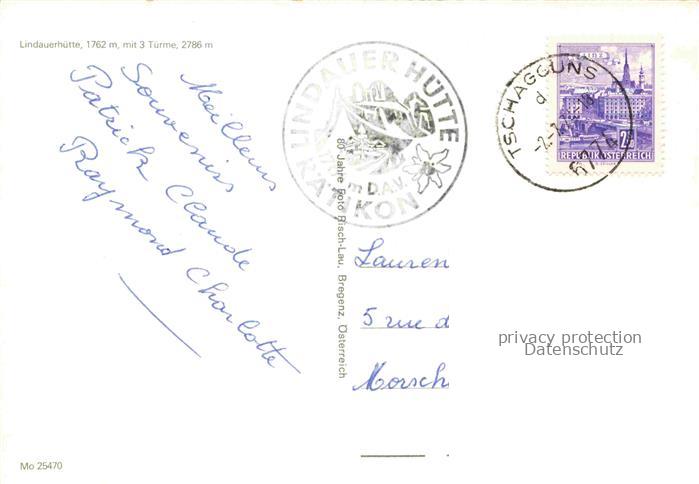 Lindauerhütte, 1762 m, mit 3 Türme, 2786 m
Meilleurs
Souvenirs
Patrick Claude
Raymond Charlotte
LINDAUER HÜTTE
m D.A.V.
RÄTIKON
80 Jahre Foto Risch-Lau, Bregenz, Österreich
LINZ
REPUBLIK ÖSTERREICH
TSCHAGGUNS
d
6774
Lauren
5 rue d
Morsch
privacy protection
Datenschutz
Mo 25470